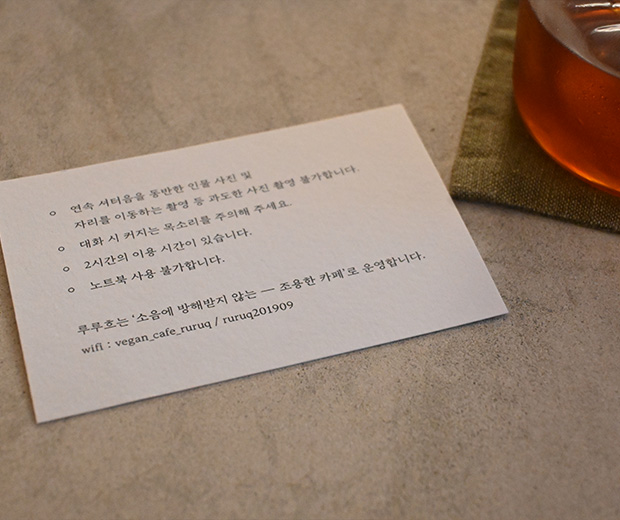 연속 셔터음을 동반한 인물 사진 및
자리를 이동하는 촬영 등 과도한 사진 촬영 불가합니다.
대화 시 커지는 목소리를 주의해 주세요.
2시간의 이용 시간이 있습니다.
노트북 사용 불가합니다.
루루흐는 '소음에 방해받지 않는 — 조용한 카페'로 운영합니다.
wifi : vegan_cafe_ruruq / ruruq201909